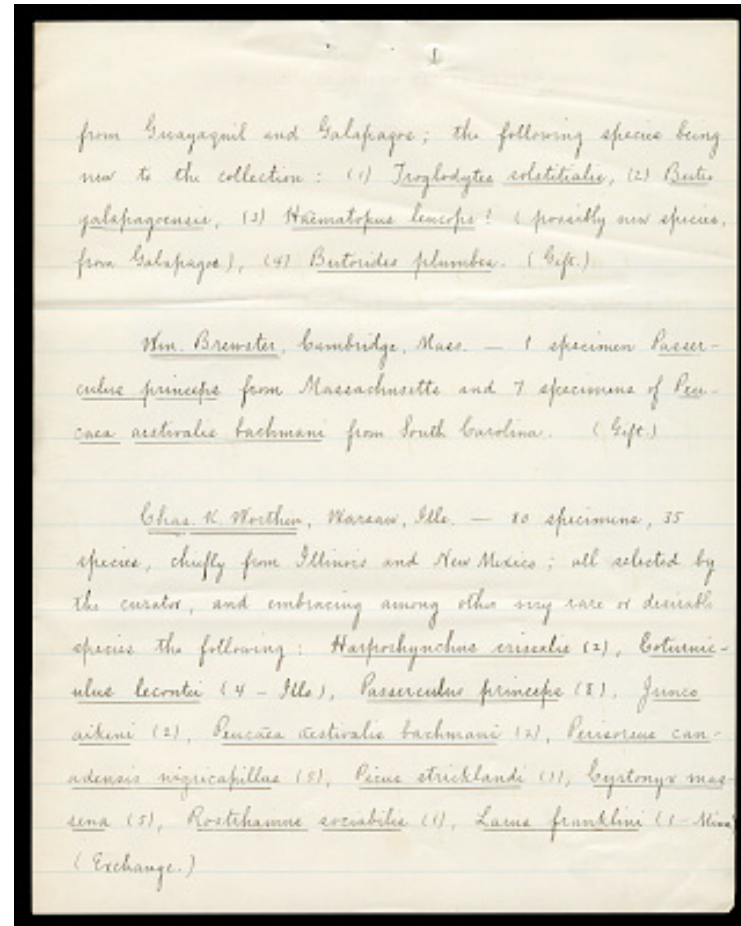 1
from Guayaquil and Galapagos; the following species being
new to the collection: (1) Troglodytes solstitialis, (2) Buteo
galapagoensis, (3) Haematopus leucops? (possibly new species,
from Galapagos), (4) Butorides plumbea. (Gift.)
Wm. Brewster, Cambridge, Mass. — 1 specimen Passer-
culus princeps from Massachusetts and 7 specimens of Peu-
caea aestivalis bachmani from South Carolina. (Gift.)
Chas. K. Worthen, Warsaw, Ills. — 80 specimens, 35
species, chiefly from Illinois and New Mexico; all selected by
the curator, and embracing among other very rare or desirable
species the following: Harporhynchus crissalis (2), Coturnic-
ulus lecontei (4 - Ills), Passerculus princeps (8), Junco
aikeni (2), Peucaea aestivalis bachmani (2), Perisoreus can-
adensis nigricapillus (8), Picus stricklandi (1), Cyrtonyx mas-
sena (5), Rostrhamus sociabilis (1), Larus franklini (1 - Minn)
(Exchange.)